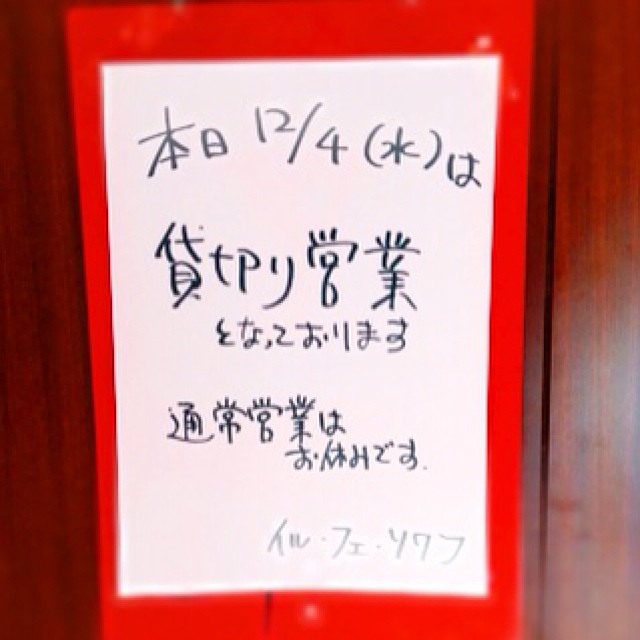 本日 12/4(水)は
貸切り営業
となっております
通常営業は
お休みです.
イル・フェ・ソワフ